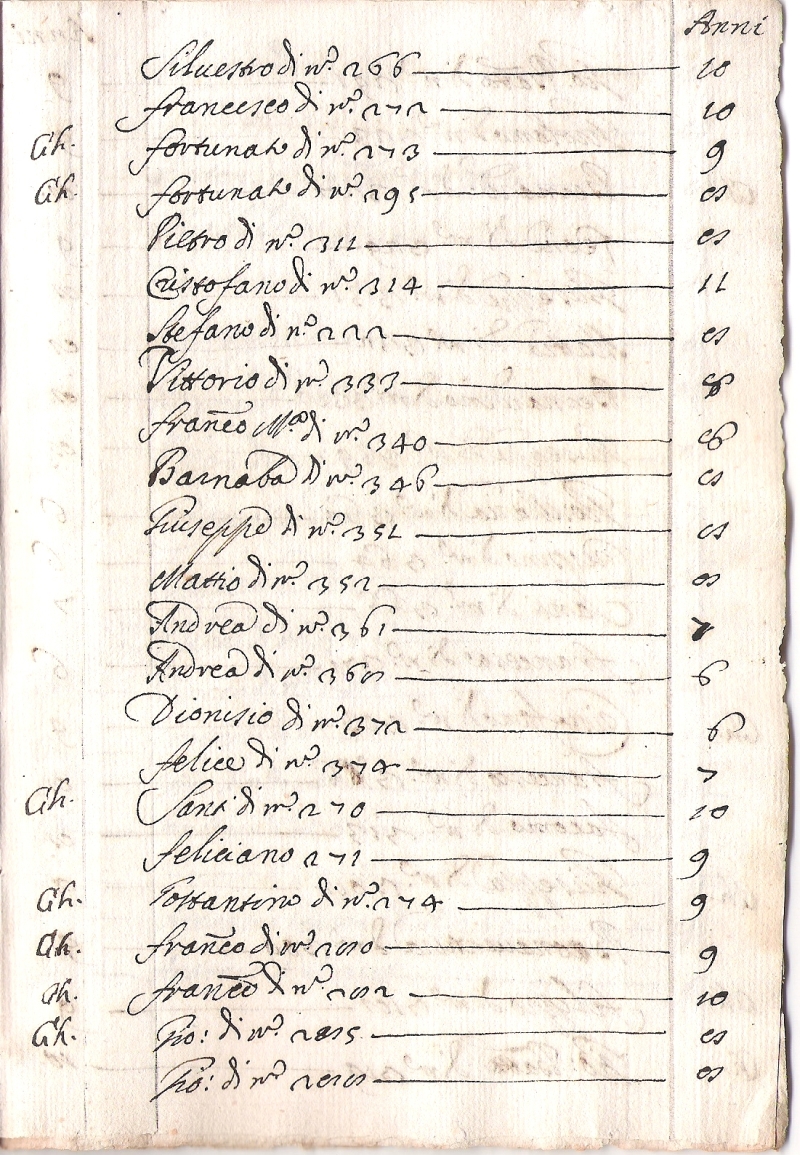 Anni
Siluestro di n.º 266 — 10
francesco di n.º 272 — 10
Ch. fortunato di n.º 273 — 9
Ch. fortunato di n.º 295 — 8
Pietro di n.º 311 — 8
Cristofano di n.º 314 — 11
Stefano di n.º 222 — 8
Vittorio di n.º 333 — 8
franc̃o Mª di n.º 340 — 8
Barnaba di n.º 346 — 8
Giuseppe di n.º 351 — 8
Mattio di n.º 352 — 8
Andrea di n.º 361 — 7
Andrea di n.º 368 — 6
Dionisio di n.º 372 — 6
felice di n.º 374 — 7
Ch. Santi di n.º 270 — 10
feliciano 271 — 9
Ch. Costantino di n.º 274 — 9
Ch. franc̃o di n.º 280 — 9
Ch. franc̃o di n.º 282 — 10
Ch. Gio: di n.º 285 — 8
Gio: di n.º 288 — 8